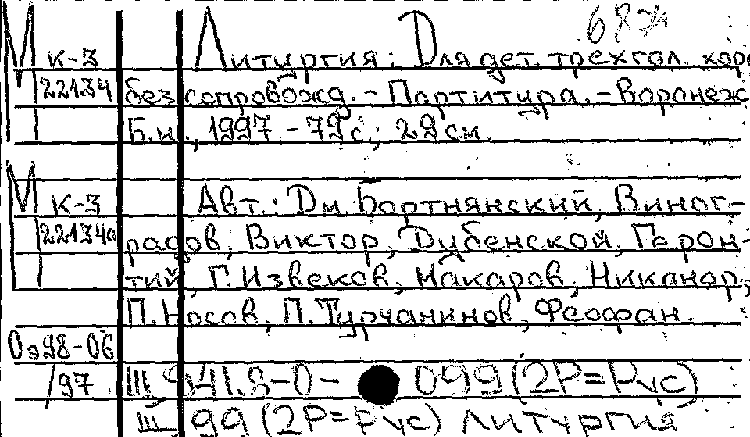 687
М к-3 Литургия: Для дет. трехгол. хора
22134 без сопровожд. - Партитура. - Воронеж:
Б.и., 1997 - 79 с.; 29 см.
М к-3 Авт.: Дм. Бортнянский, Виног-
22134а радов, Виктор, Дубенской, Герон-
тий, Г. Извеков, Макаров, Никанор,
П. Носов, П. Турчанинов, Феофан.
Оэ98-06
/97 III 941.8-0- 099 (2Р=Рус)
III 99 (2Р=Рус) Литургия